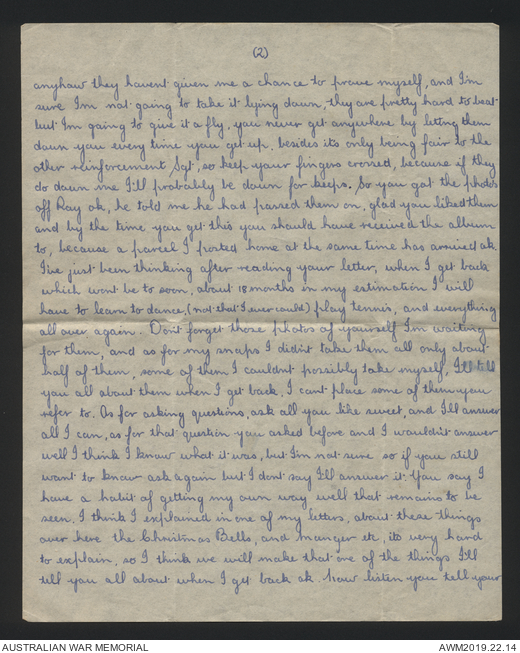 (2)
anyhow they havent given me a chance to prove myself, and I'm
sure I'm not going to take it lying down, they are pretty hard to beat
but I'm going to give it a fly, you never get anywhere by letting them
down you every time you get up, besides its only being fair to the
other reinforcement Sgt, so keep your fingers crossed, because if they
do down me I'll probably be down for keeps. So you got the photos
off Ray ok, he told me he had passed them on, glad you liked them
and by the time you get this you should have received the album
to, because a parcel I posted home at the same time has arrived ok.
I've just been thinking after reading your letter, when I get back
which wont be to soon, about 18 months in my estimation I will
have to learn to dance, (not that I ever could) play tennis, and everything
all over again. Don't forget those photos of yourself I'm waiting
for them, and as for my snaps I didn't take them all only about
half of them, some of them I couldn't possibly take myself, I'll tell
you all about them when I get back, I cant place some of them you
refer to. As for asking questions, ask all you like sweet, and I'll answer
all I can, as for that question you asked before and I wouldn't answer
well I think I know what it was, but I'm not sure so if you still
want to know ask again but I dont say I'll answer it. You say I
have a habit of getting my own way well that remains to be
seen. I think I explained in one of my letters, about these things
over here the Christmas Bells, and manger etc, its very hard
to explain, so I think we will make that one of the things I'll
tell you all about when I get back ok. Now listen you tell your
AUSTRALIAN WAR MEMORIAL
AWM2019.22.14